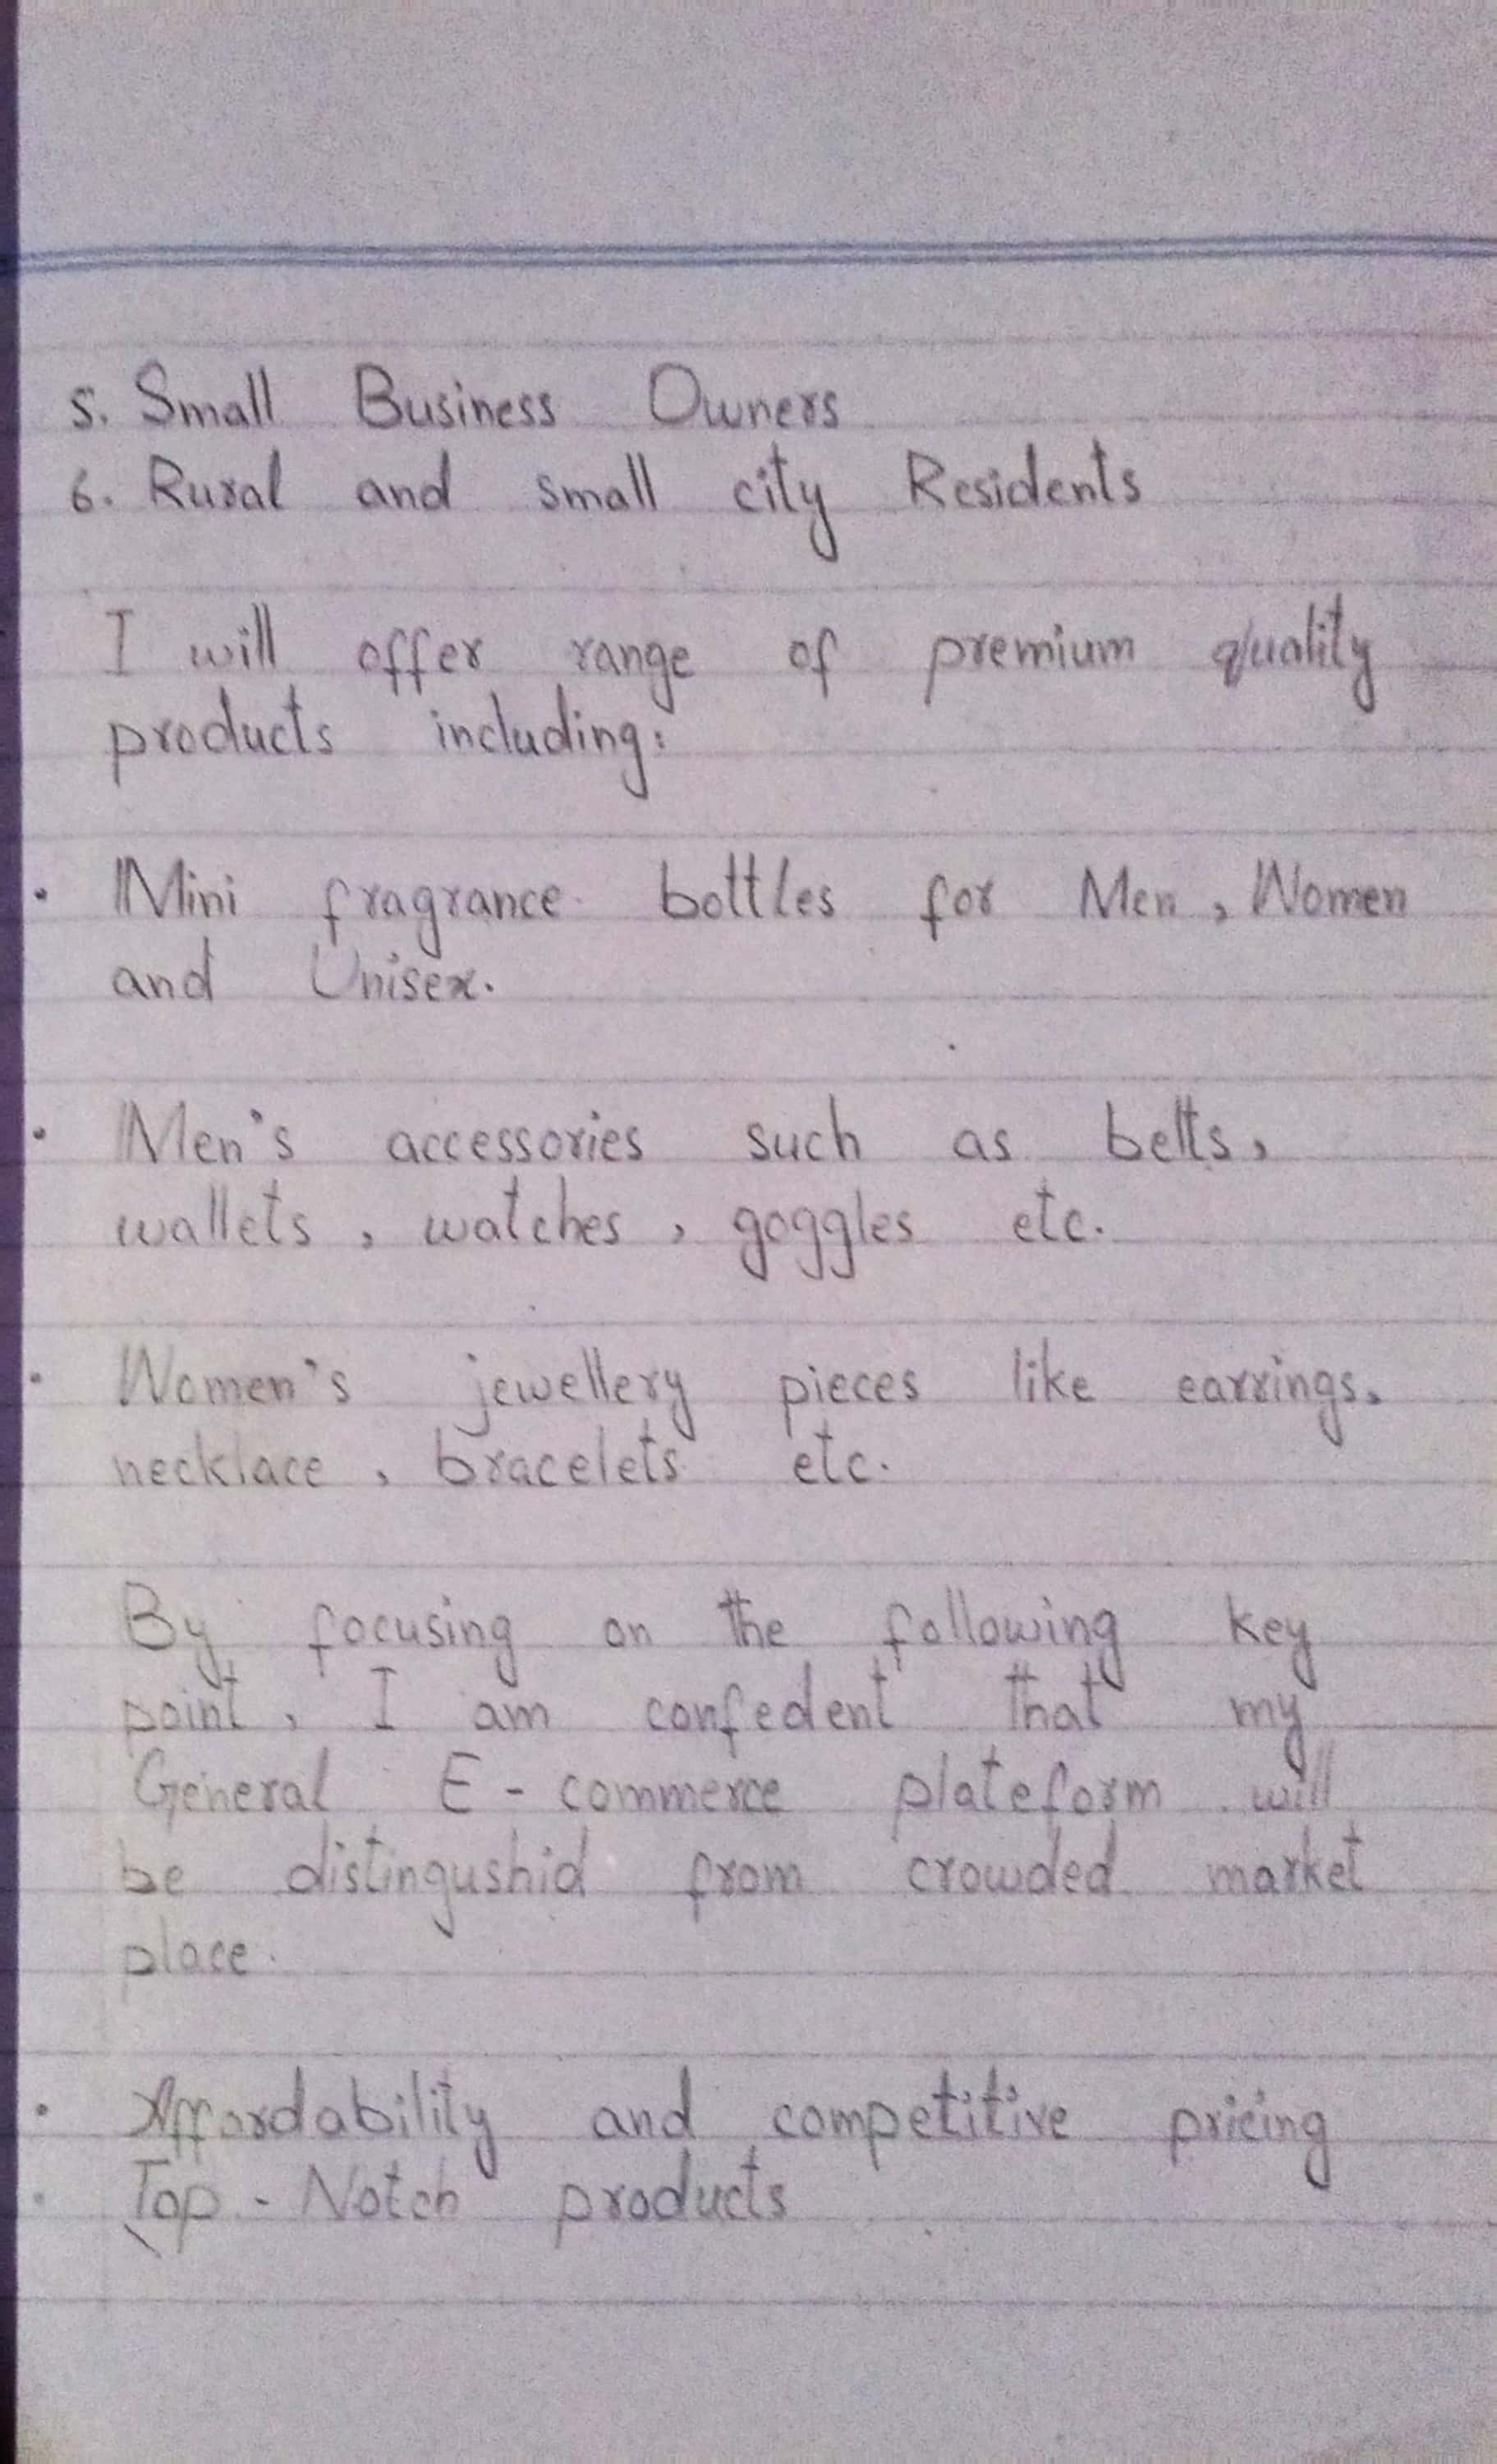 5. Small Business Owners
6. Rural and small city Residents
I will offer range of premium quality
products including:
• Mini fragrance bottles for Men, Women
and Unisex.
• Men's accessories such as belts,
wallets, watches, goggles etc.
• Women's jewellery pieces like earrings,
necklace, bracelets etc.
By focusing on the following key
point, I am confedent that my
General E-commerce plateform will
be distingushid from crowded market
place.
• Affordability and competitive pricing
• Top-Notch products